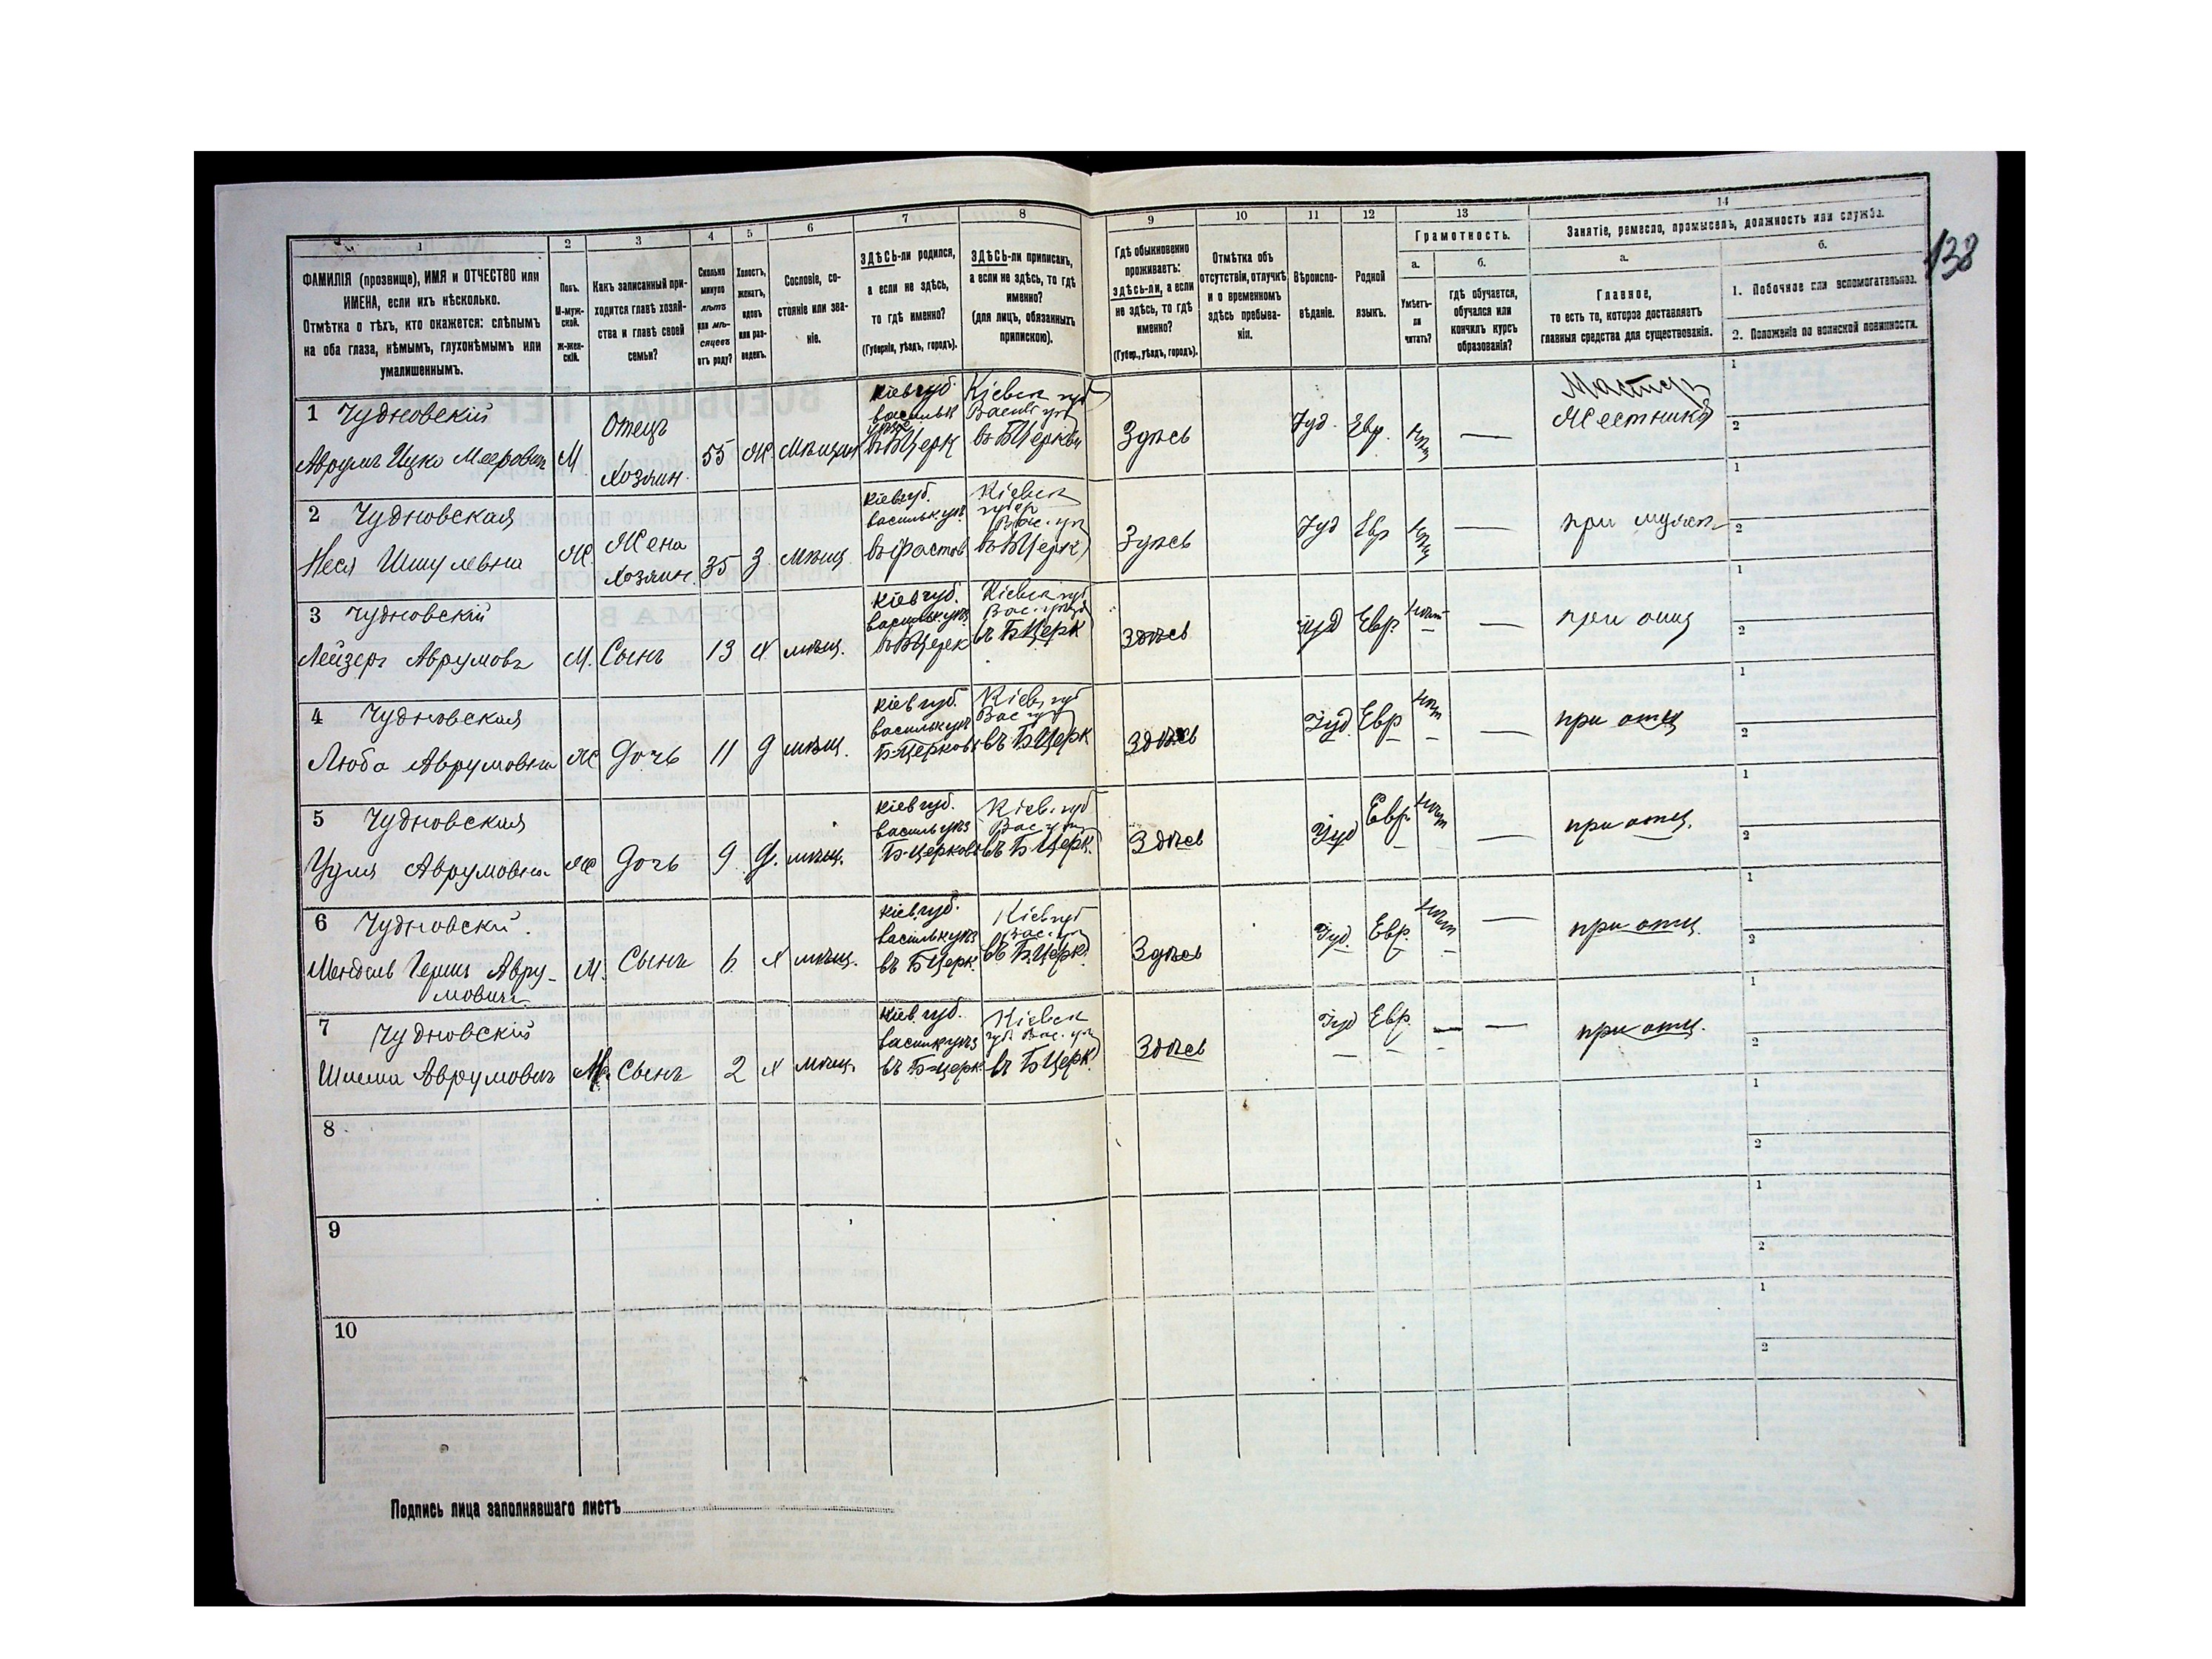 138
1 2 3 4 5 6 7 8 9 10 11 12 13 14
ФАМИЛІЯ (прозвище), ИМЯ и ОТЧЕСТВО или
ИМЕНА, если ихъ нѣсколько.
Отмѣтка о тѣхъ, кто окажется: слѣпымъ
на оба глаза, нѣмымъ, глухонѣмымъ или
умалишеннымъ.
Полъ.
М-муж-
ской.
ж-жен-
скій.
Какъ записанный при-
ходится главѣ хозяй-
ства и главѣ своей
семьи?
Сколько
минуло
лѣтъ
или мѣ-
сяцевъ
отъ роду?
Холостъ,
женатъ,
вдовъ
или раз-
веденъ.
Сословіе, со-
стояніе или зва-
ніе.
ЗДѢСЬ-ли родился,
а если не здѣсь,
то гдѣ именно?
(Губернія, уѣздъ, городъ).
ЗДѢСЬ-ли приписанъ,
а если не здѣсь, то гдѣ
именно?
(для лицъ, обязанныхъ
припискою).
Гдѣ обыкновенно
проживаетъ:
здѣсь-ли, а если
не здѣсь, то гдѣ
именно?
(Губер., уѣздъ, городъ).
Отмѣтка объ
отсутствіи, отлучкѣ
и о временномъ
здѣсь пребыва-
ніи.
Вѣроиспо-
вѣданіе.
Родной
языкъ.
Грамотность.
а.
Умѣетъ-
ли
читать?
б.
гдѣ обучается,
обучался или
кончилъ курсъ
образованія?
Занятіе, ремесло, промыселъ, должность или служба.
а.
Главное,
то есть то, которое доставляетъ
главныя средства для существованія.
б.
1. Побочное или вспомогательное.
2. Положеніе по воинской повинности.
1 Чудновскій
Аврумъ Ицко Мееровичъ М. Отецъ Хозяин. 55 Ж. Мѣщан
Кіев губ васильк уѣзд въ БЦерк
Кіевск губ Васильк узд въ БЦеркви
Здѣсь Іуд. Евр. нѣт — Мастер Жестникъ
1
2
2 Чудновская
Неся Шмулевна Ж. Жена Хозяин. 35 З. мѣщ
Кіев губ. васильк. уѣз. въ Фастов
Кіевск губер Вас. уѣз въ БЦерк
Здѣсь Іуд Евр нѣт — при мужѣ
1
2
3 Чудновскій
Лейзеръ Аврумовъ М. Сынъ 13 Х мѣщ.
Кіев губ. васильк. уѣз. въ БЦерк
Кіевск губ Вас. уѣзд въ БЦерк
здѣсь Іуд Евр. нѣт — при отц
1
2
4 Чудновская
Люба Аврумовна Ж Дочь 11 Д мѣщ.
Кіев губ. васильк уѣз Б-Церковь
Кіев. губ Вас уѣз въ БЦерк
Здѣсь Іуд. Евр нѣт — при отц
1
2
5 Чудновская
Аврумовна Ж Дочь 9 Д. мѣщ.
Кіев губ. васильк уѣз Б-Церковь
Кіев. губ Вас уѣз въ БЦерк.
Здѣсь Іуд Евр. нѣт — при отц.
1
2
6 Чудновскі.
Мендель Гершъ Авру-
мовичъ М. Сынъ 6 Х мѣщ.
Кіев губ. васильк уѣз въ БЦерк.
Кіев губ Вас. уѣз въ БЦерк.
Здѣсь Іуд. Евр. нѣт — при отц.
1
2
7 Чудновскій
Аврумович М. Сынъ 2 Х мѣщ.
Кіев. губ. васильк уѣз въ Б-Церк
Кіевск губ Вас. уѣз въ БЦерк.
Здѣсь Іуд Евр. — — при отц.
1
2
8
1
2
9
1
2
10
1
2
Подпись лица заполнявшаго листъ